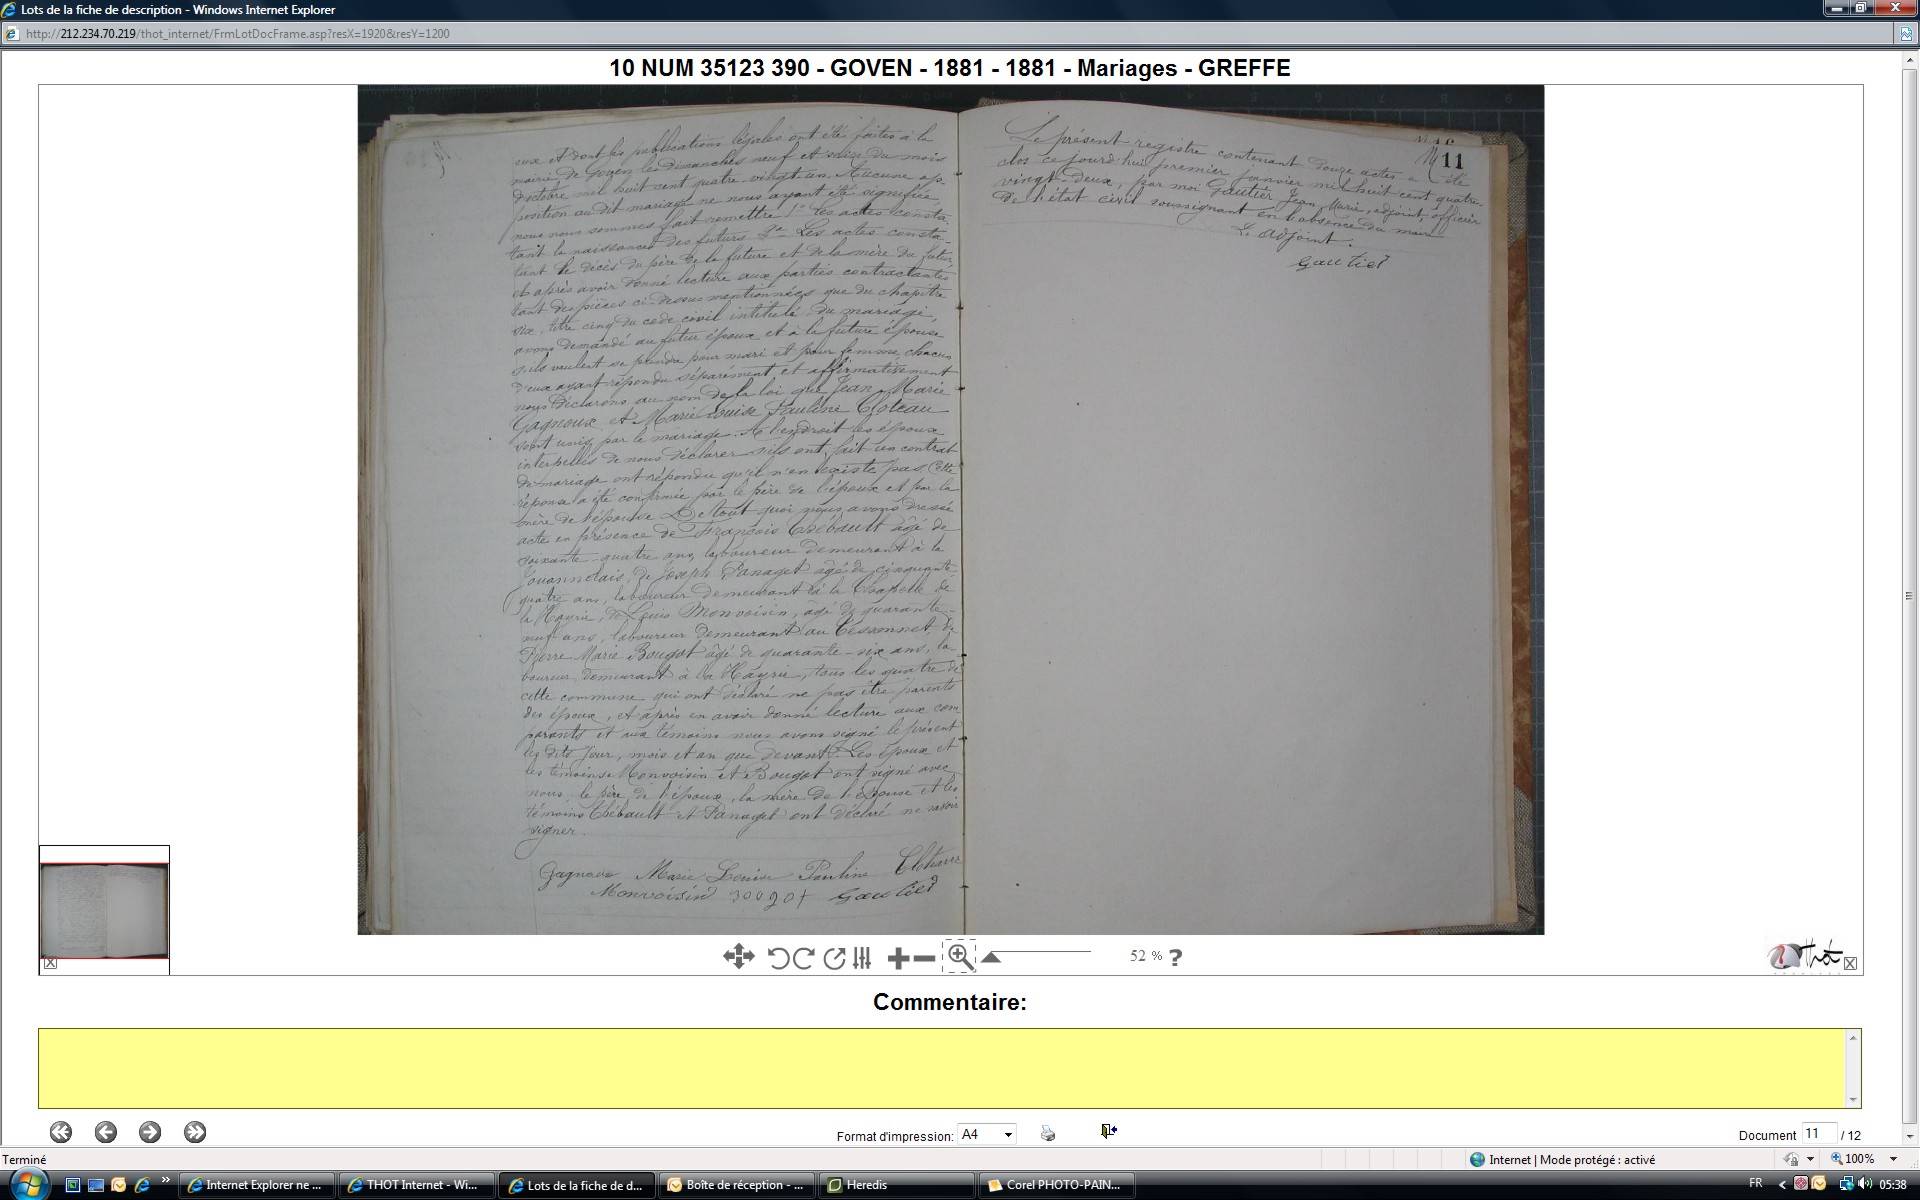 Lots de la fiche de description - Windows Internet Explorer
http://212.234.70.219/thot_internet/FrmLotDocFrame.asp?resX=1920&resY=1200
10 NUM 35123 390 - GOVEN - 1881 - 1881 - Mariages - GREFFE
eux et dont les publications légales ont été faites à la
mairie de Goven les dimanches neuf et seize du mois
d'octobre mil huit cent quatre-vingt-un. Aucune op-
position au dit mariage ne nous ayant été signifiée,
nous nous sommes fait remettre 1° les actes consta-
tant la naissance des futurs 2° Les actes consta-
tant le décès du père de la future et de la mère du futur,
et après avoir donné lecture aux parties contractantes
tant des pièces ci-dessus mentionnées que du chapitre
six, titre cinq du code civil intitulé du mariage,
avons demandé au futur époux et à la future épouse
s'ils veulent se prendre pour mari et pour femme, chacun
d'eux ayant répondu séparément et affirmativement
nous déclarons au nom de la loi que Jean Marie
Gagnoux et Marie Louise Pauline Cloteau
sont unis par le mariage. A l'endroit les époux
interpellés de nous déclarer s'ils ont fait un contrat
de mariage ont répondu qu'il n'en existe pas. Cette
réponse a été confirmée par le père de l'époux et par la
mère de l'épouse De tout quoi nous avons dressé
acte en présence de François Thébault âgé de
soixante-quatre ans, laboureur demeurant à la
Jouannelais, de Joseph Panaget âgé de cinquante-
quatre ans, laboureur demeurant à la Chapelle de
la Hayrie, de Louis Monvoisin, âgé de quarante-
neuf ans, laboureur demeurant au Tessonnet, de
Pierre Marie Bougot âgé de quarante-six ans, la-
boureur demeurant à la Hayrie, tous les quatre de
cette commune qui ont déclaré ne pas être parents
des époux, et après en avoir donné lecture aux com-
parants et aux témoins nous avons signé le présent
les dits jour, mois et an que devant. Les époux et
les témoins Monvoisin et Bougot ont signé avec
nous, le père de l'époux, la mère de l'épouse et les
témoins Thébault et Panaget ont déclaré ne savoir
signer.
Gagnoux Marie Louise Pauline
Monvoisin Gautier
11
Le présent registre contenant douze actes a été
clos ce jourd'hui premier janvier mil huit cent quatre-
vingt-deux, par moi Gautier Jean Marie, adjoint, officier
de l'état civil soussignant en l'absence du maire
L'adjoint.
Gautier
52 % ?
Thot
Commentaire:
Format d'impression: A4
Document 11 / 12
Terminé
Internet | Mode protégé : activé
100%
Internet Explorer ne ...
THOT Internet - Wi...
Lots de la fiche de d...
Boîte de réception - ...
Heredis
Corel PHOTO-PAIN...
FR
05:38